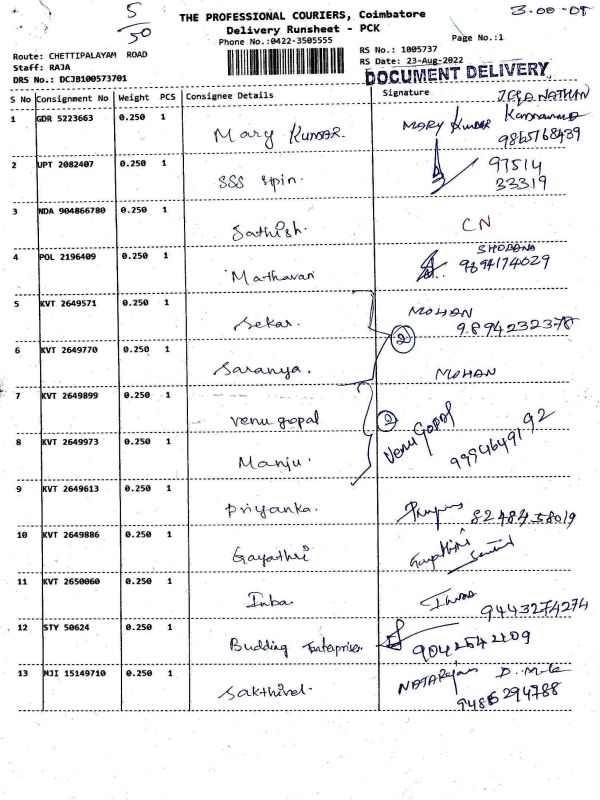 5
50
THE PROFESSIONAL COURIERS, Coimbatore
Delivery Runsheet - PCK
Phone No.:0422-3505555
Page No.:1
Route: CHETTIPALAYAM ROAD
Staff: RAJA
DRS No.: DCJB100573701
RS No.: 1005737
RS Date: 23-Aug-2022
DOCUMENT DELIVERY
S No Consignment No Weight PCS Consignee Details Signature
1 GDR 5223663 0.250 1 Mary Kumar. MARY Kumar
9865768439
2 UPT 2082407 0.250 1 SSS Spin. 97514
33319
3 NDA 904866780 0.250 1 Sathish. CN
4 POL 2196409 0.250 1 Mathavan SHOBANA
9894174029
5 KVT 2649571 0.250 1 Sekar. MOHAN
9.894232378
2
6 KVT 2649770 0.250 1 Saranya. MOHAN
7 KVT 2649899 0.250 1 Venu gopal 2 Venu Gopal
8 KVT 2649973 0.250 1 Manju. 9994649192
9 KVT 2649613 0.250 1 Priyanka. 8248458019
10 KVT 2649886 0.250 1 Gayathri Gayathiri
11 KVT 2650060 0.250 1 Inba.
9443274274
12 STY 50624 0.250 1 Budding Enterprises. 9042542109
13 MJI 15149710 0.250 1 Sakthivel. NATARajan
9486294788